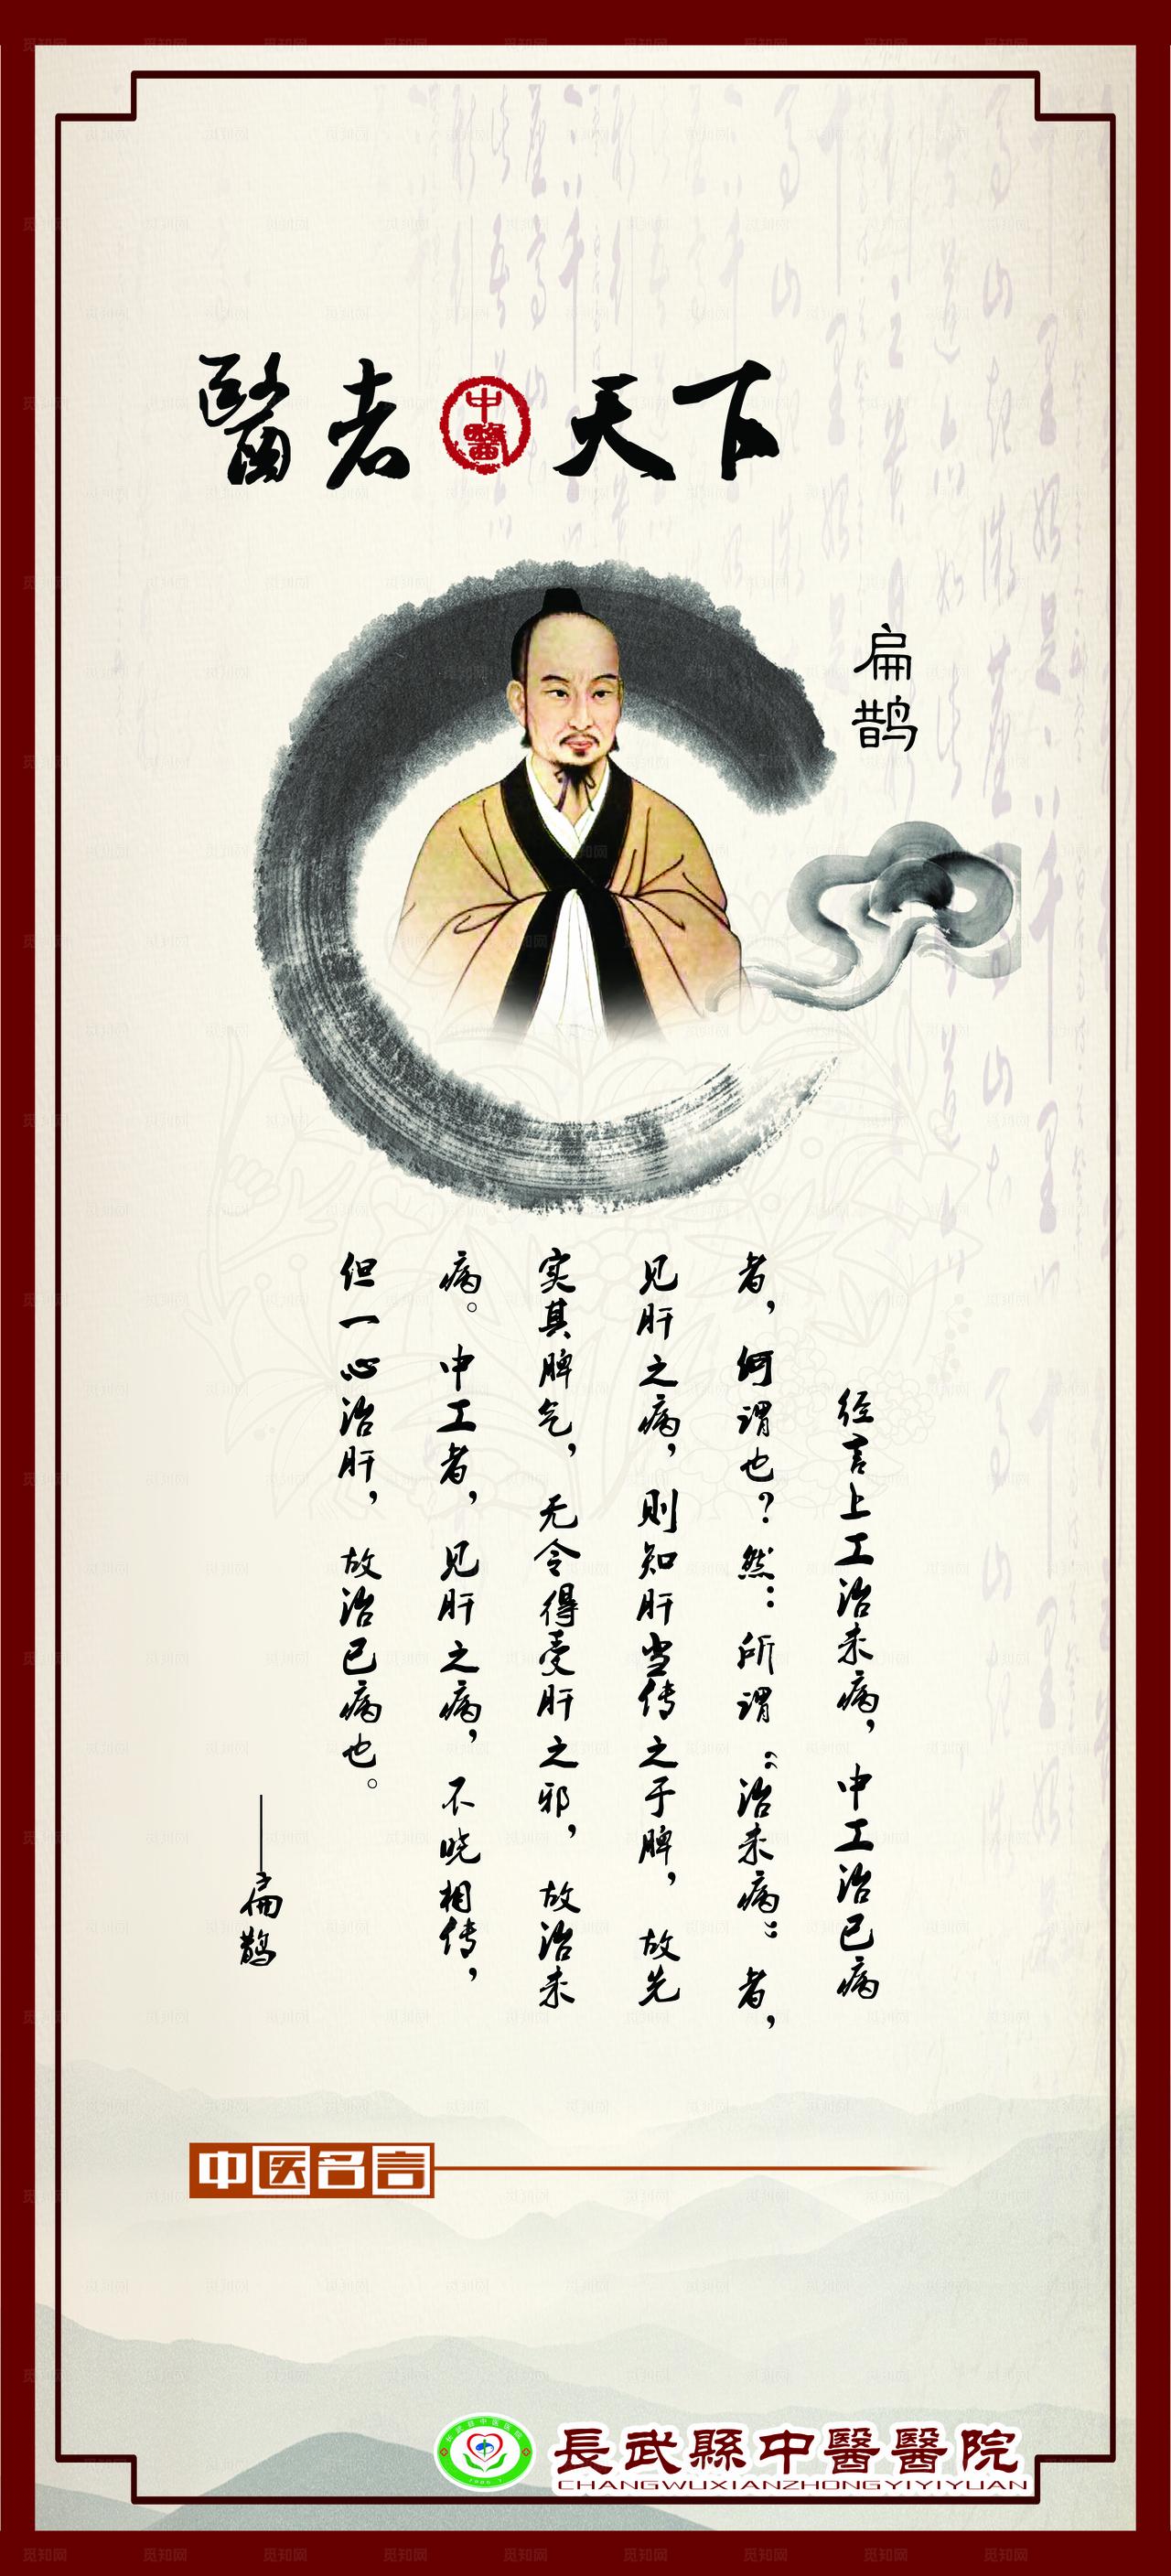 醫者 天下
中醫
扁鹊
经言上工治未病，中工治已病
者，何谓也？然：所谓“治未病”者，
见肝之病，则知肝当传之于脾，故先
实其脾气，无令得受肝之邪，故治未
病。中工者，见肝之病，不晓相传，
但一心治肝，故治已病也。
——扁鹊
中医名言
長武縣中醫醫院
CHANGWUXIANZHONGYIYIYUAN
觅知网